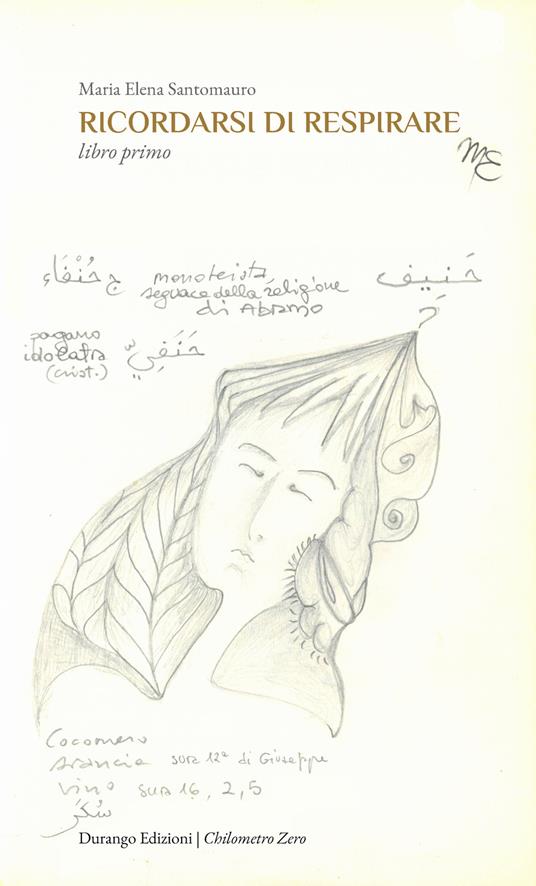 Maria Elena Santomauro
RICORDARSI DI RESPIRARE
libro primo
ME
حَنيف monoteista ج حُنَفَاء
seguace della religione
di Abramo
pagano
idolatra حَنَفِيّ
(crist.)
Cocomero
Arancia sura 12ª di Giuseppe
Vino sura 16, 2,5
سُكَّر
Durango Edizioni | Chilometro Zero